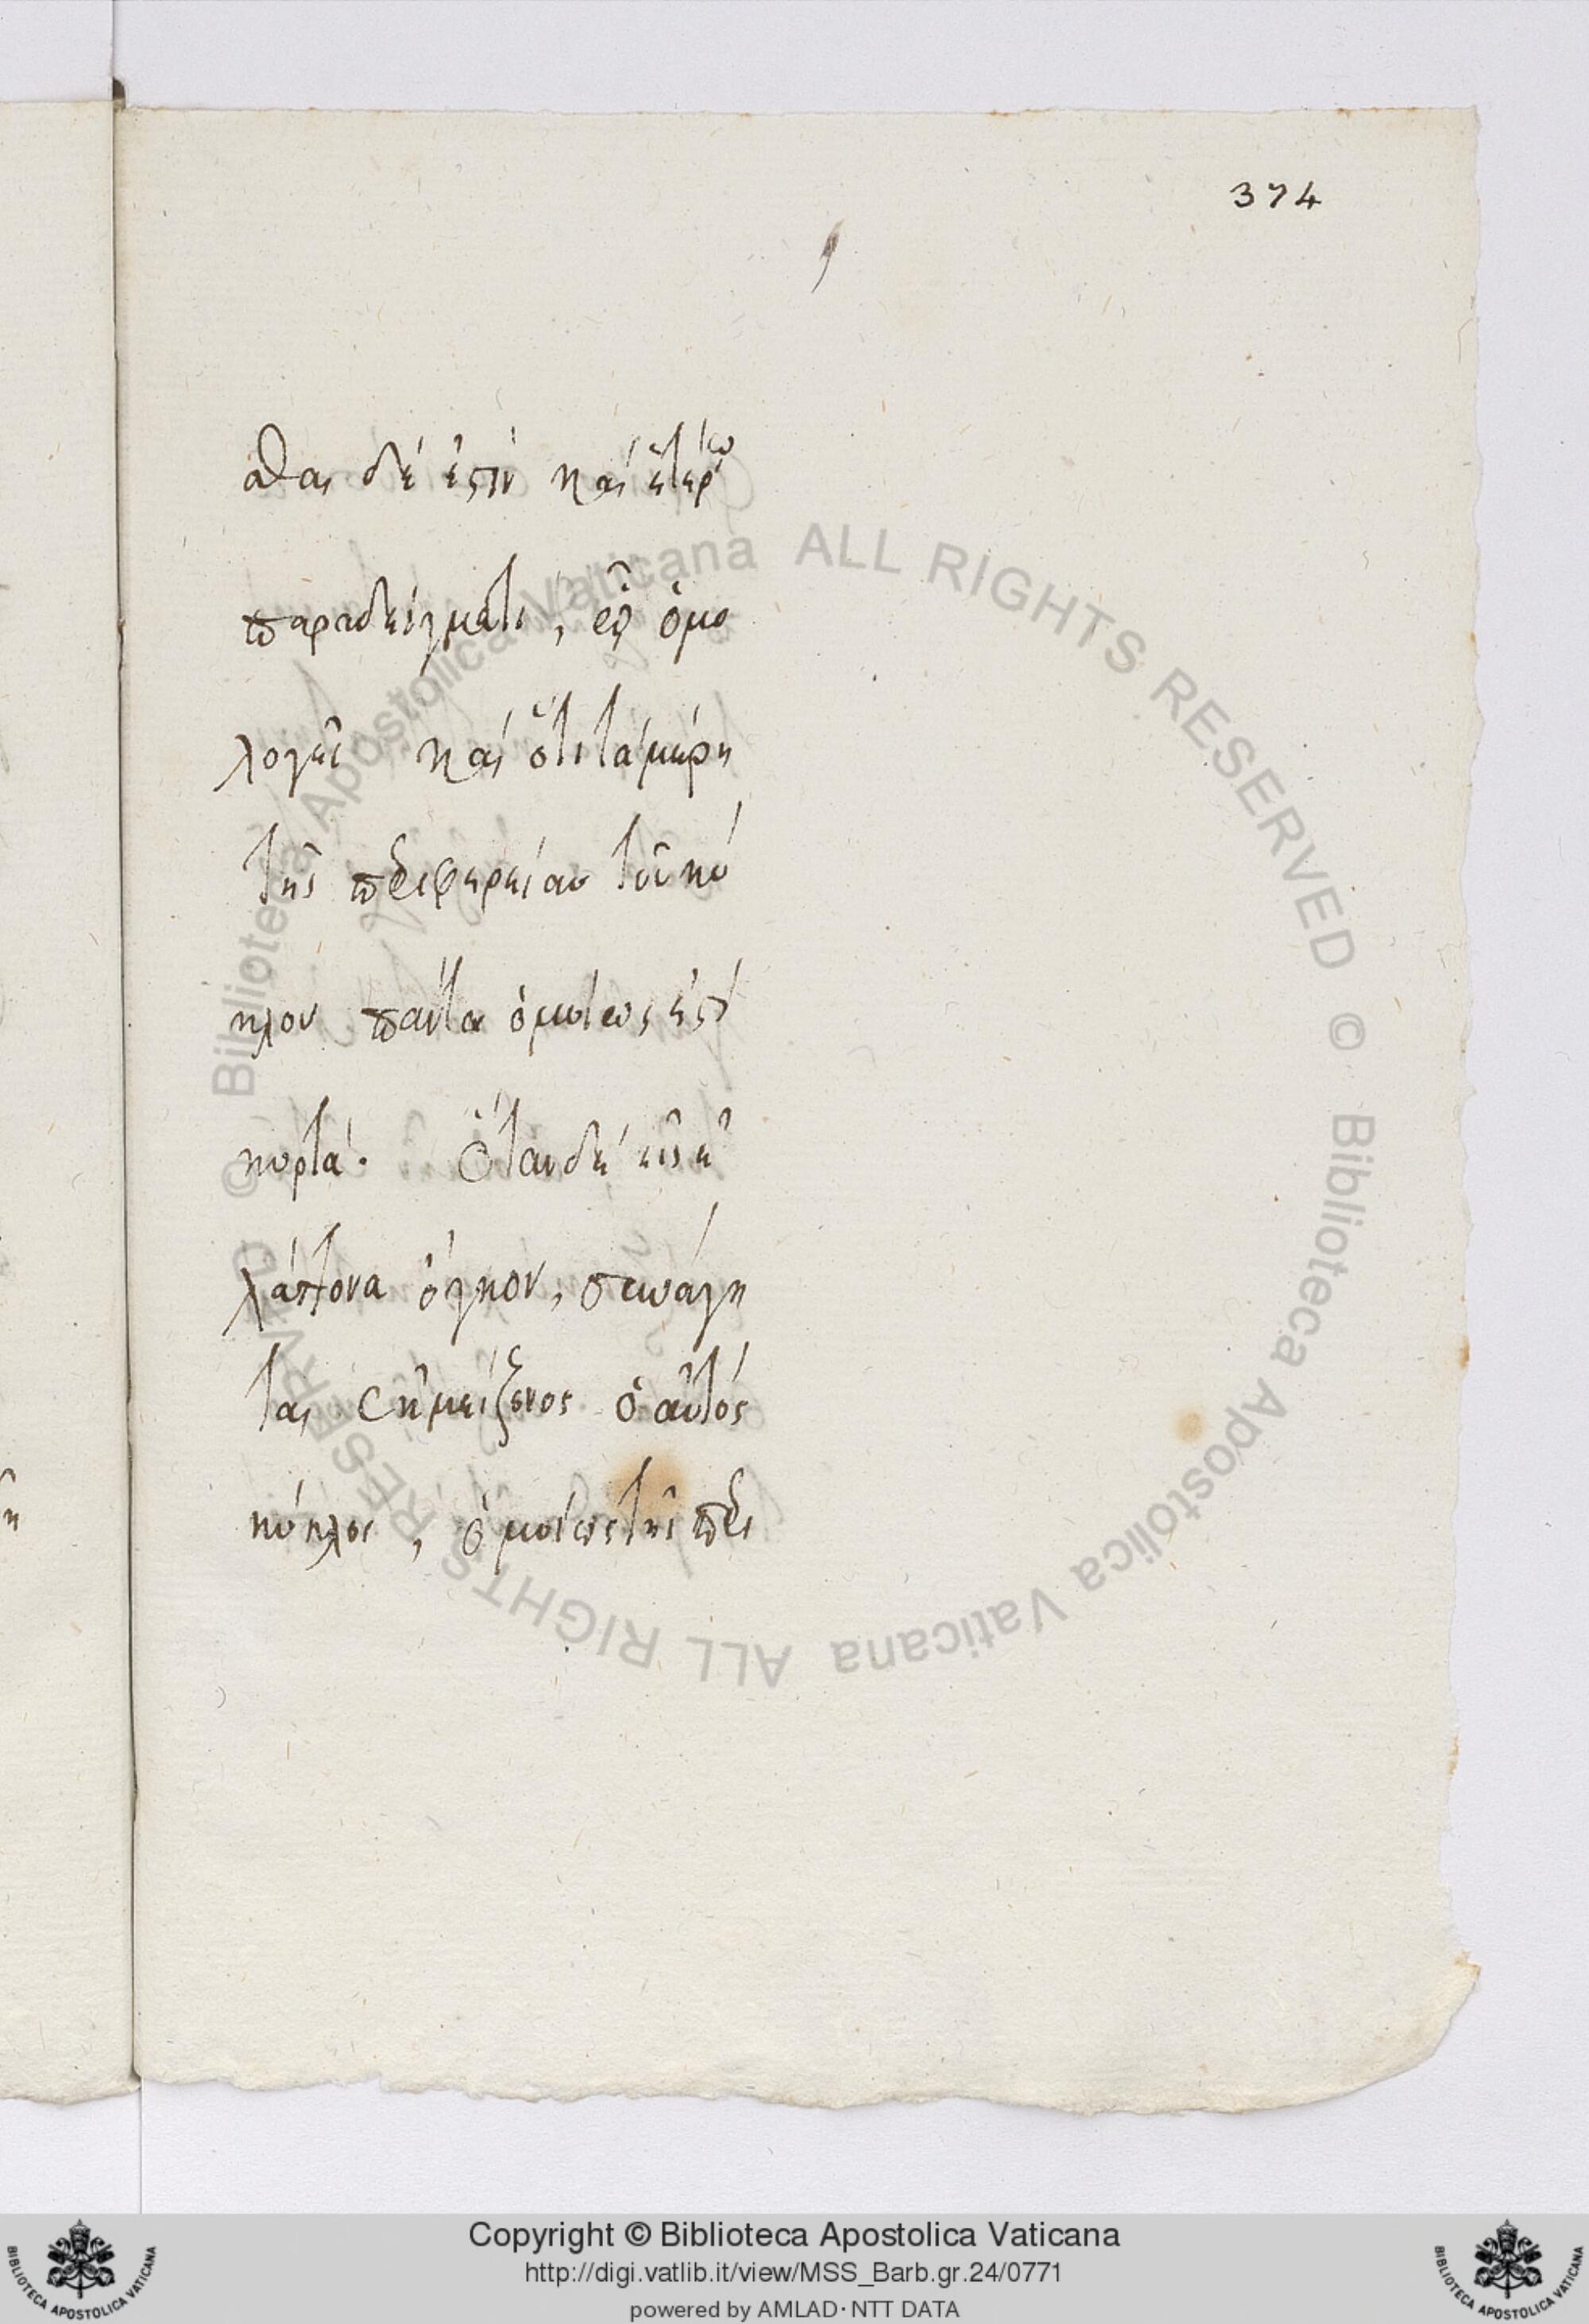 374
σθαι δέ ἐστιν καὶ ἑτέρῳ
παραδείγματι, ἐξ ὁμο
λογεῖ καὶ ὅτι τὰ μέρη
τῆς περιφερείας τοῦ κύ
κλου πάντα ὁμοίως ἐστὶ
κυρτά. Ὅταν δὲ εἰς ἐ
λάττονα ὄγκον, συνάγη
ται ἐκ μείζονος ὁ αὐτός
κύκλος, ὁμοίως τῆς περι
© Biblioteca Apostolica Vaticana ALL RIGHTS RESERVED © Biblioteca Apostolica Vaticana ALL RIGHTS RESERVED
Copyright © Biblioteca Apostolica Vaticana
http://digi.vatlib.it/view/MSS_Barb.gr.24/0771
powered by AMLAD · NTT DATA
BIBLIOTECA APOSTOLICA VATICANA
BIBLIOTECA APOSTOLICA VATICANA